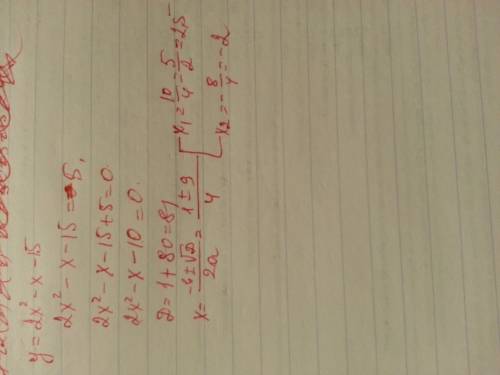 y = 2x² - x - 15
2x² - x - 15 = -5,
2x² - x - 15 + 5 = 0
2x² - x - 10 = 0.
D = 1 + 80 = 81
x = \frac{-b ± √D}{2a} = \frac{1 ± 9}{4} [ x₁ = \frac{10}{4} = \frac{5}{2} = 2,5
x₂ = -\frac{8}{4} = -2